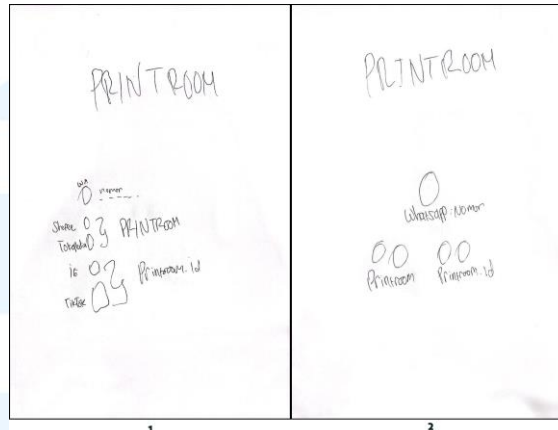 PRINTROOM
WA
: nomor
Shopee
Tokopedia
PRINTROOM
IG
TikTok
Printroom.id
1
PRINTROOM
Whatsapp : Nomor
Printroom Printroom.id
2